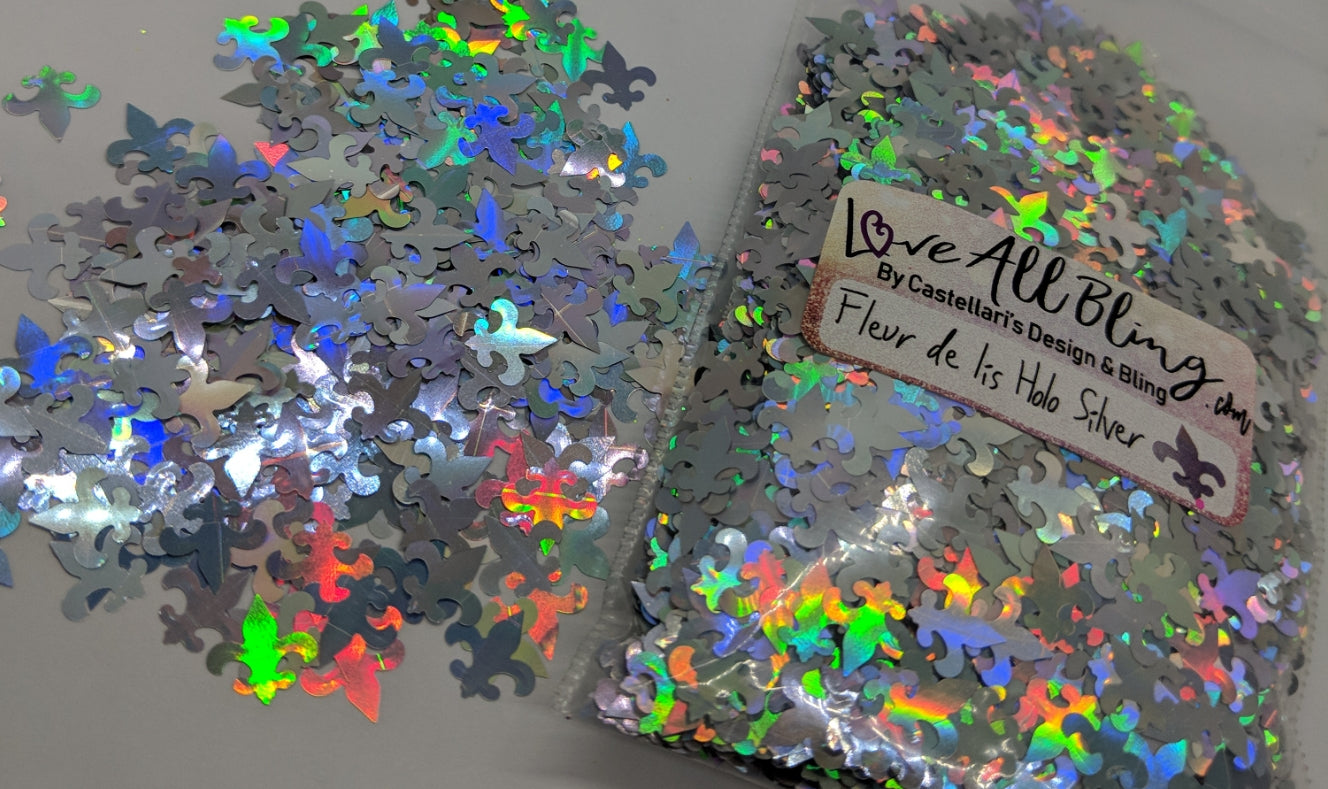 Love All Bling.com
By Castellari's Design & Bling
Fleur de lis Holo Silver